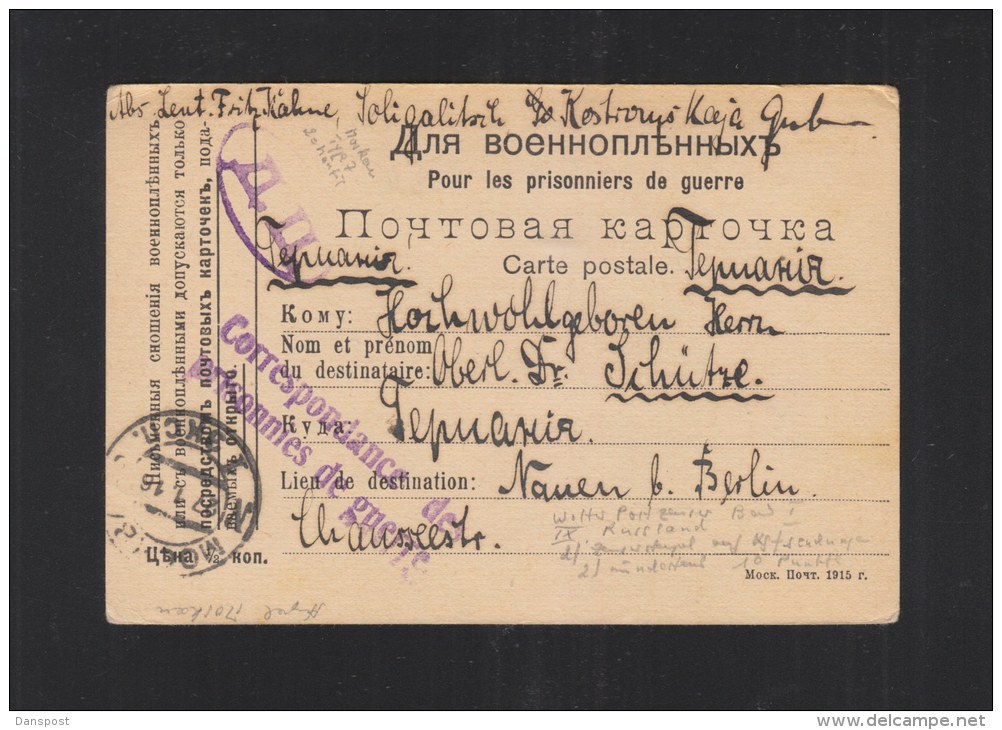 Abs. Leut. Fritz Kähne, Soligalitsch Kostromskaja Gub
Для военноплѣнныхъ
Pour les prisonniers de guerre
Почтовая карточка
Carte postale.
Германія.
Германія.
Кому: Hochwohlgeboren Herrn
Nom et prénom
du destinataire: Oberl. Dr. Schütze.
Куда: Германія.
Lieu de destination: Nauen b. Berlin.
Chausseestr.
Моск. Почт. 1915 г.
Письменныя сношенія военноплѣнныхъ
или съ военноплѣнными допускаются только
посредствомъ почтовыхъ карточекъ, пода-
ваемыхъ открыто.
Цѣна ½ коп.
Д. Ц.
Correspondance des
prisonniés de guerre
Moskau
Russland
10 Punkte
Moskau
Danspost
www.delcampe.net